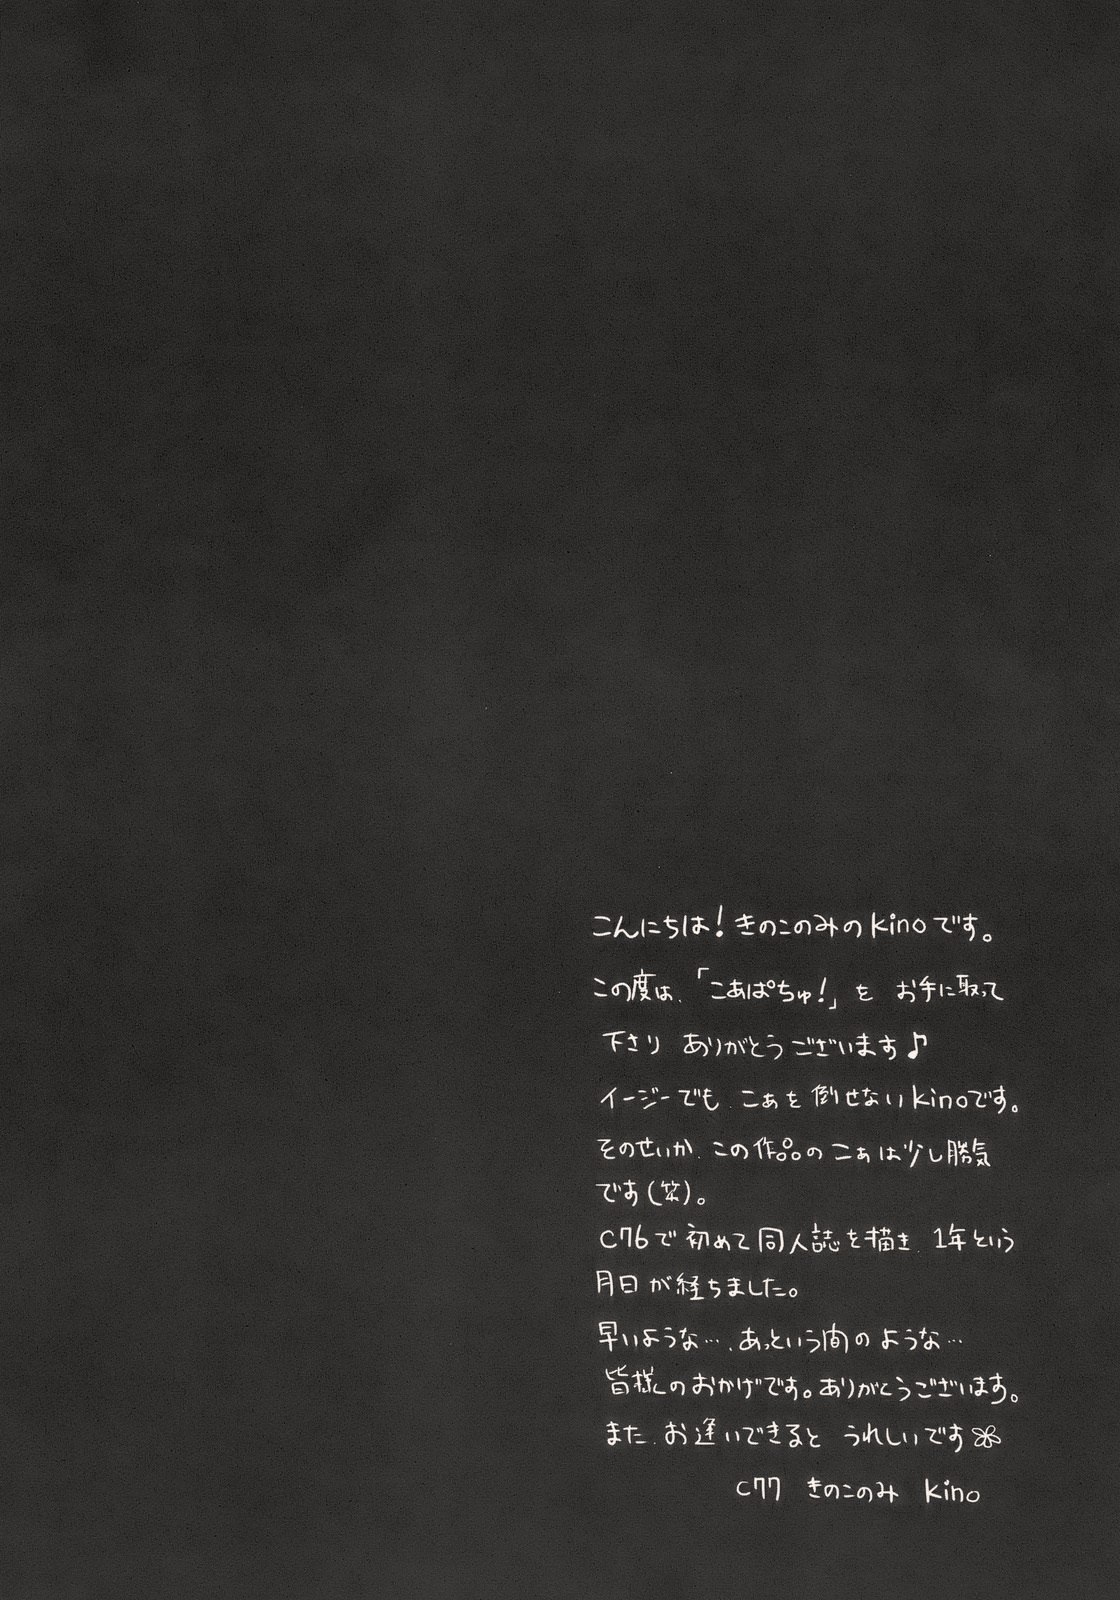 こんにちは!きのこのみのkinoです。
この度は、「こあぱちゅ!」を お手に取って
下さり ありがとうございます♪
イージーでも、こぁを倒せないkinoです。
そのせいか、この作品のこぁは少し勝気
です(笑)。
C76で初めて同人誌を描き、1年という
月日が経ちました。
早いような…、あっという間のような…
皆様のおかげです。ありがとうございます。
また、お逢いできると うれしいです
C77 きのこのみ kino